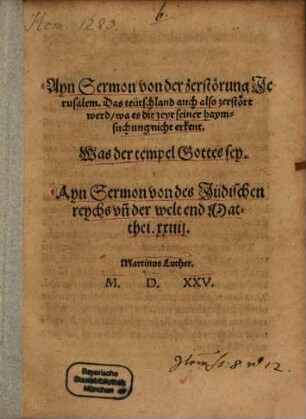 Hom. 1283
6.
Ayn Sermon von der zerstörung Je
rusalem. Das teütschland auch also zerstört
werd/ wa es die zeyt seiner haym-
suchung nicht erkent.
Was der tempel Gottes sey.
Ayn Sermon von des Jüdischen
reychs vñ der welt end Mat-
thei. xxiiij.
Martinus Luther.
M. D. XXV.
Bayerische
Staatsbibliothek
München